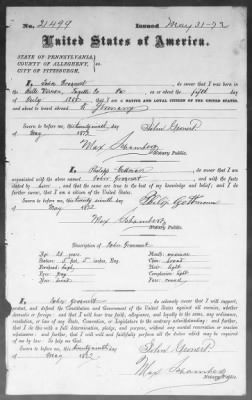 No. 21499 Issued May 31-72
United States of America.
STATE OF PENNSYLVANIA
COUNTY OF ALLEGHENY, ss.
CITY OF PITTSBURGH,
I, John do swear that I was born in
Belle Vernon, Fayette Co Pa on or about the fifth day
of July that I am a NATIVE AND LOYAL CITIZEN OF THE UNITED STATES
and about to travel abroad to Germany
Sworn to before me, this day
of May 1872
Max Schamberg
Notary Public.
I, Philipp do swear that I am
acquainted with the above named and with the facts
stated by him, and that the same are true to the best of my knowledge and belief; and I do
further swear, that I am a citizen of the United States.
Sworn to before me, this day
of May 1872
Max Schamberg
Notary Public.
Description of John
Age: 21 years Mouth:
Stature: 5 feet, 5 inches, Eng. Chin: broad
Forehead: high Hair: light
Eyes: Complexion: light
Nose: Face: round
I, John do solemnly swear that I will support,
protect, and defend the Constitution and Government of the United States against all enemies, whether
domestic or foreign; and that I will bear true faith, allegiance, and loyalty to the same, any ordinance,
resolution, or law of any State, Convention, or Legislature to the contrary notwithstanding; and further,
that I do this with a full determination, pledge, and purpose, without any mental reservation or evasion
whatsoever; and further, that I will well and faithfully perform all the duties which may be required
of me by law. So help me God.
Sworn to before me, this day
of May 1872
Max Schamberg
Notary Public.